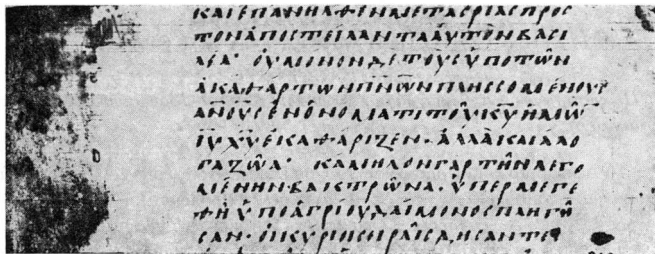 ΚΑΙΕΠΑΝΗΛΘΕΝΜΕΤΑΕΡΙΑΣΠΡΟΣ
ΤΟΝΑΠΟΣΤΕΙΛΑΝΤΑΑΥΤΟΝΒΑΣΙ
ΛΕΑ· ΟΥΜΟΝΟΝΔΕΤΟΥΣΥΠΟΤΩΝ
ΑΚΑΘΑΡΤΩΝΠ̅Ν̅Ω̅Ν̅ΠΛΗΣΣΟΜΕΝΟΥΣ
Α̅Ν̅Ο̅Υ̅Σ̅ΕΝΟΝΟΜΑΤΙΤΟΥΚ̅Υ̅ΗΜΩΝ
Ι̅Υ̅Χ̅Υ̅ΕΚΑΘΑΡΙΖΕΝ·ΑΛΛΑΚΑΙΑΛΟ
ΓΑΖΩΑ· ΚΑΜΗΛΟΝΓΑΡΤΗΝΛΕΓΟ
ΜΕΝΗΝΒΑΚΤΡΩΝΑ·ΥΠΕΡΜΕΓΕ
ΘΗΥΠΟΑΓΡΙΟΥΔΑΙΜΟΝΟΣΠΛΗΓΗ
ΣΑΝ·ΟΙΚΥΡΙΟΙ